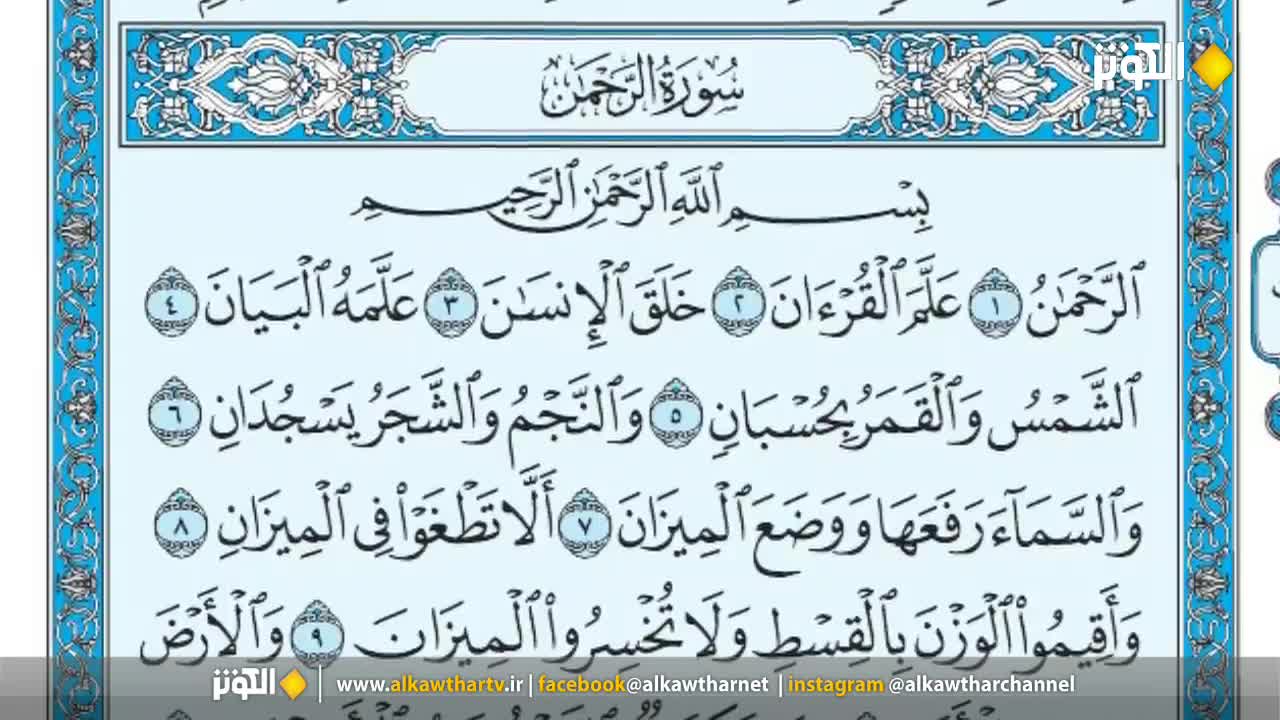 الكوثر
سُورَةُ الرَّحْمَٰن
بِسْمِ ٱللَّهِ ٱلرَّحْمَٰنِ ٱلرَّحِيمِ
ٱلرَّحْمَٰنُ ١ عَلَّمَ ٱلْقُرْءَانَ ٢ خَلَقَ ٱلْإِنسَٰنَ ٣ عَلَّمَهُ ٱلْبَيَانَ ٤
ٱلشَّمْسُ وَٱلْقَمَرُ بِحُسْبَانٍ ٥ وَٱلنَّجْمُ وَٱلشَّجَرُ يَسْجُدَانِ ٦
وَٱلسَّمَآءَ رَفَعَهَا وَوَضَعَ ٱلْمِيزَانَ ٧ أَلَّا تَطْغَوْا۟ فِى ٱلْمِيزَانِ ٨
وَأَقِيمُوا۟ ٱلْوَزْنَ بِٱلْقِسْطِ وَلَا تُخْسِرُوا۟ ٱلْمِيزَانَ ٩ وَٱلْأَرْضَ
الكوثر | www.alkawthartv.ir | facebook@alkawtharnet | instagram @alkawtharchannel